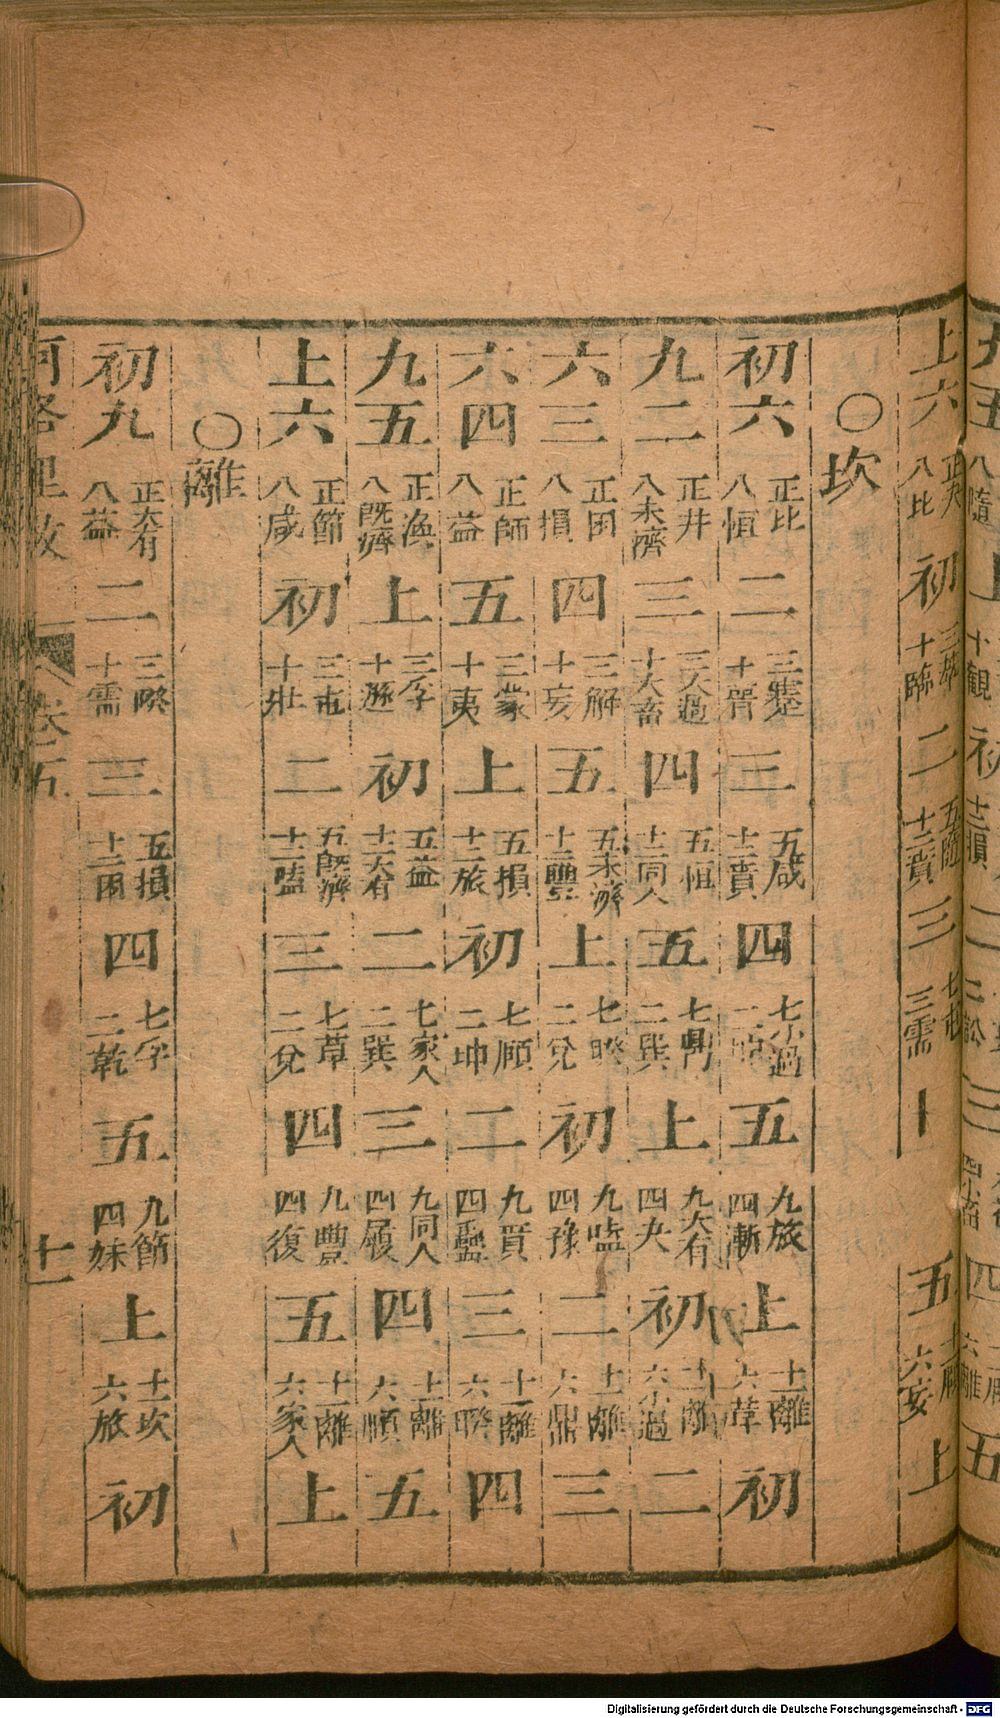 上六 八比 初 十臨 二 三 三需 五 六妄 上
○坎
初六 正比 八恒 二 十晉 三 五咸 十二賁 四 七小過 五 九旅 四漸 上 十一離 六革 初
九二 正井 八未濟 三 三大過 十大畜 四 五恒 十二同人 五 七鼎 二巽 上 九大有 四夬 初 十一離 六小過 二
六三 正困 八損 四 三解 十妄 五 五未濟 十二豐 上 七睽 二兌 初 九嗑 四豫 二 十一離 六鼎 三
六四 正師 八益 五 三蒙 十夷 上 五損 十二旅 初 七頤 二坤 二 九賁 四蠱 三 十一離 六睽 四
九五 正渙 八既濟 上 三孚 十遯 初 五益 十二大有 二 七家人 二巽 三 九同人 四履 四 十一離 六頤 五
上六 正節 八咸 初 三屯 十壯 二 五既濟 十二嗑 三 七革 二兌 四 九豐 四復 五 十一離 六家人 上
○離
初九 正大有 八益 二 三睽 十需 三 五損 十二困 四 七孚 二乾 五 九節 四妹 上 十一坎 六旅 初
卷五 十一
Digitalisierung gefördert durch die Deutsche Forschungsgemeinschaft - DFG